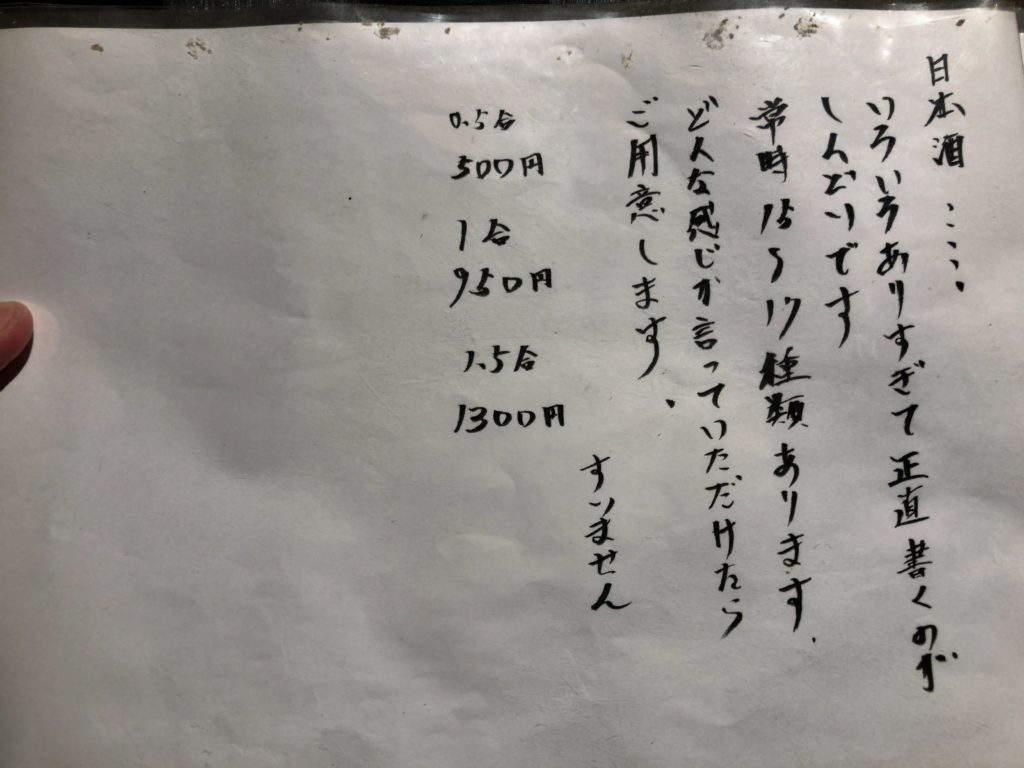 日本酒・・・・
いろいろありすぎて正直書くのが
しんどいです
常時15〜17種類あります。
どんな感じか言っていただけたら
ご用意します。
すいません
0.5合
500円
1合
950円
1.5合
1300円